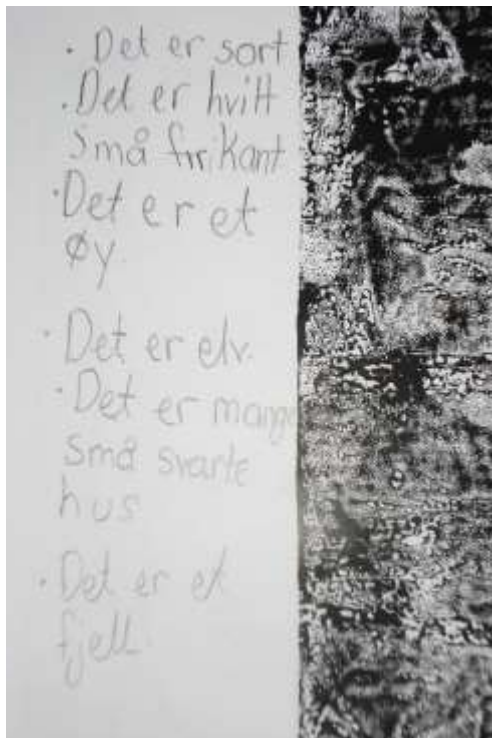 · Det er sort
· Det er hvitt
små firkant
· Det er et
øy
· Det er elv.
· Det er mange
små svarte
hus
· Det er et
fjell.